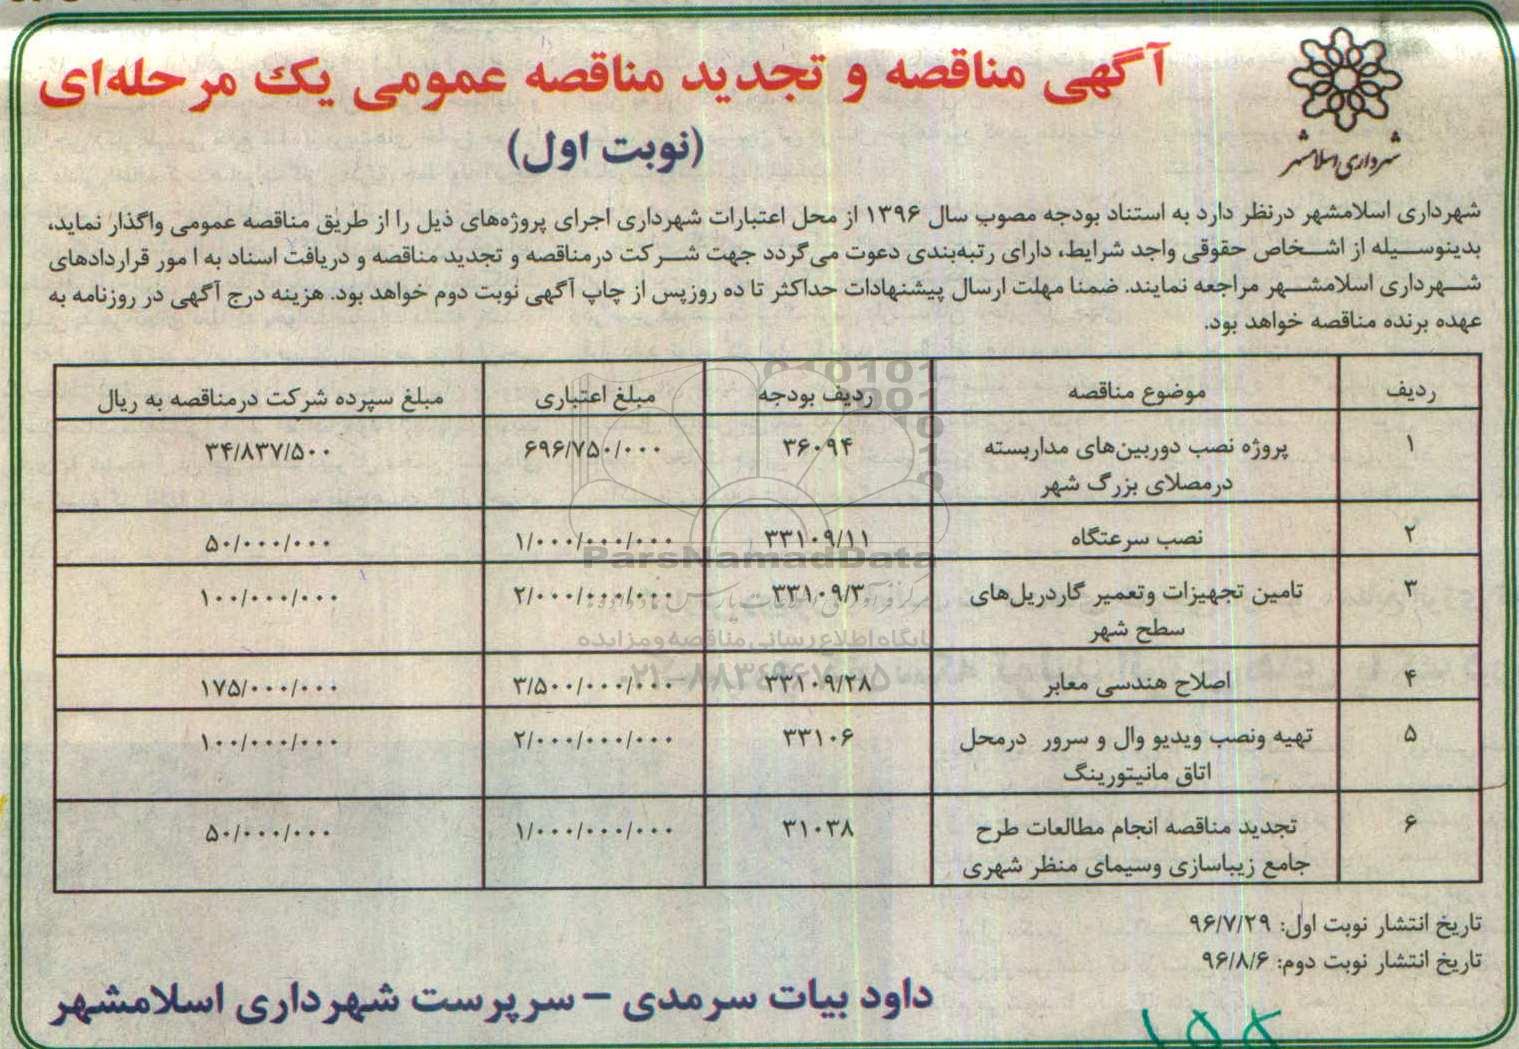 آگهی مناقصه و تجدید مناقصه عمومی یک مرحله‌ای
(نوبت اول)
شهرداری اسلامشهر
شهرداری اسلامشهر درنظر دارد به استناد بودجه مصوب سال ۱۳۹۶ از محل اعتبارات شهرداری اجرای پروژه‌های ذیل را از طریق مناقصه عمومی واگذار نماید،
بدینوسیله از اشخاص حقوقی واجد شرایط، دارای رتبه‌بندی دعوت می‌گردد جهت شرکت درمناقصه و تجدید مناقصه و دریافت اسناد به ا مور قراردادهای
شهرداری اسلامشهر مراجعه نمایند. ضمنا مهلت ارسال پیشنهادات حداکثر تا ده روزپس از چاپ آگهی نوبت دوم خواهد بود. هزینه درج آگهی در روزنامه به
عهده برنده مناقصه خواهد بود.
ردیف موضوع مناقصه ردیف بودجه مبلغ اعتباری مبلغ سپرده شرکت درمناقصه به ریال
۱ پروژه نصب دوربین‌های مداربسته ۳۶۰۹۴ ۶۹۶/۷۵۰/۰۰۰ ۳۴/۸۳۷/۵۰۰
درمصلای بزرگ شهر
۲ نصب سرعتگاه ۳۳۱۰۹/۱۱ ۱/۰۰۰/۰۰۰/۰۰۰ ۵۰/۰۰۰/۰۰۰
۳ تامین تجهیزات وتعمیر گاردریل‌های ۳۳۱۰۹/۳ ۲/۰۰۰/۰۰۰/۰۰۰ ۱۰۰/۰۰۰/۰۰۰
سطح شهر
۴ اصلاح هندسی معابر ۳۳۱۰۹/۲۸ ۳/۵۰۰/۰۰۰/۰۰۰ ۱۷۵/۰۰۰/۰۰۰
۵ تهیه ونصب ویدیو وال و سرور درمحل ۳۳۱۰۶ ۲/۰۰۰/۰۰۰/۰۰۰ ۱۰۰/۰۰۰/۰۰۰
اتاق مانیتورینگ
۶ تجدید مناقصه انجام مطالعات طرح ۳۱۰۳۸ ۱/۰۰۰/۰۰۰/۰۰۰ ۵۰/۰۰۰/۰۰۰
جامع زیباسازی وسیمای منظر شهری
ParsNamadData
پایگاه اطلاع رسانی مناقصه و مزایده
تاریخ انتشار نوبت اول: ۹۶/۷/۲۹
تاریخ انتشار نوبت دوم: ۹۶/۸/۶
داود بیات سرمدی – سرپرست شهرداری اسلامشهر